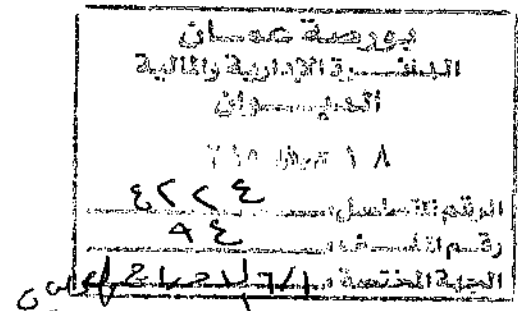 بورصة عمان
الدائرة الإدارية والمالية
الديوان
١٨ تموز ٢٠١٥
الرقم المتسلسل: ٤٢٢٤
رقم الملف: ٩٤
الجهة المختصة: